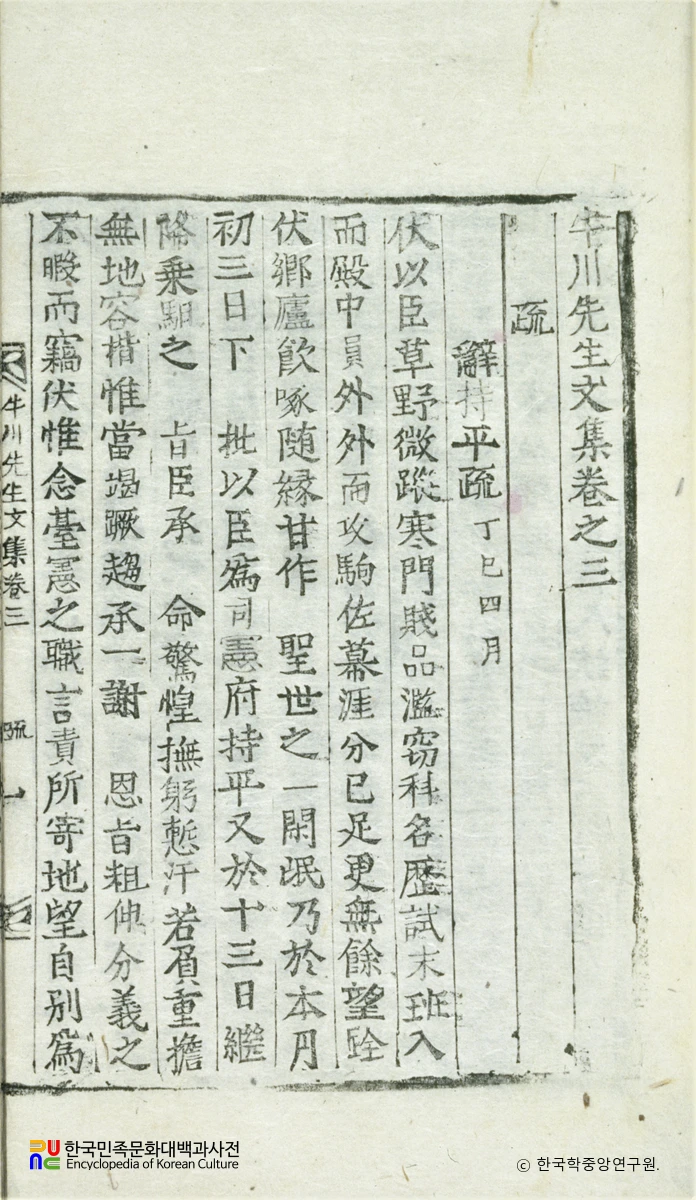 牛川先生文集卷之三
疏
辭持平疏 丁巳四月
伏以臣草野微蹤寒門賤品濫窃科名歷試末班入
而殿中員外外而攻駒佐幕涯分已足更無餘望跧
伏鄕廬飮啄随緣甘作 聖世之一閑氓乃於本月
初三日下 批以臣爲司憲府持平又於十三日繼
降乗馹之 旨臣承 命驚惶撫躬慙汗若負重擔
無地容措惟當竭蹶趨承一謝 恩旨粗伸分義之
不暇而竊伏惟念臺憲之職言責所寄地望自别爲
牛川先生文集卷三 疏 一
한국민족문화대백과사전
Encyclopedia of Korean Culture
© 한국학중앙연구원.